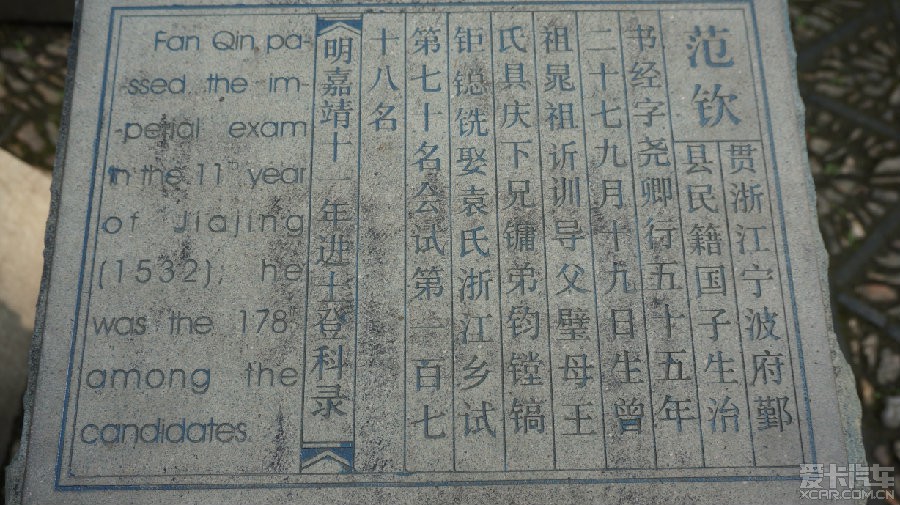 范钦
贯浙江宁波府鄞
县民籍国子生治
书经字尧卿行五十五年
二十七九月十九日生曾
祖晁祖䜣训导父璧母王
氏具庆下兄镛弟钧镗镐
钜镱铣娶袁氏浙江乡试
第七十名会试第一百七
十八名
明嘉靖十一年进士登科录
Fan Qin pa-
-ssed the im-
-perial exam
in the 11 year
of Jiajing
(1532); he
was the 178
among the
candidates
爱卡汽车
XCAR.COM.CN